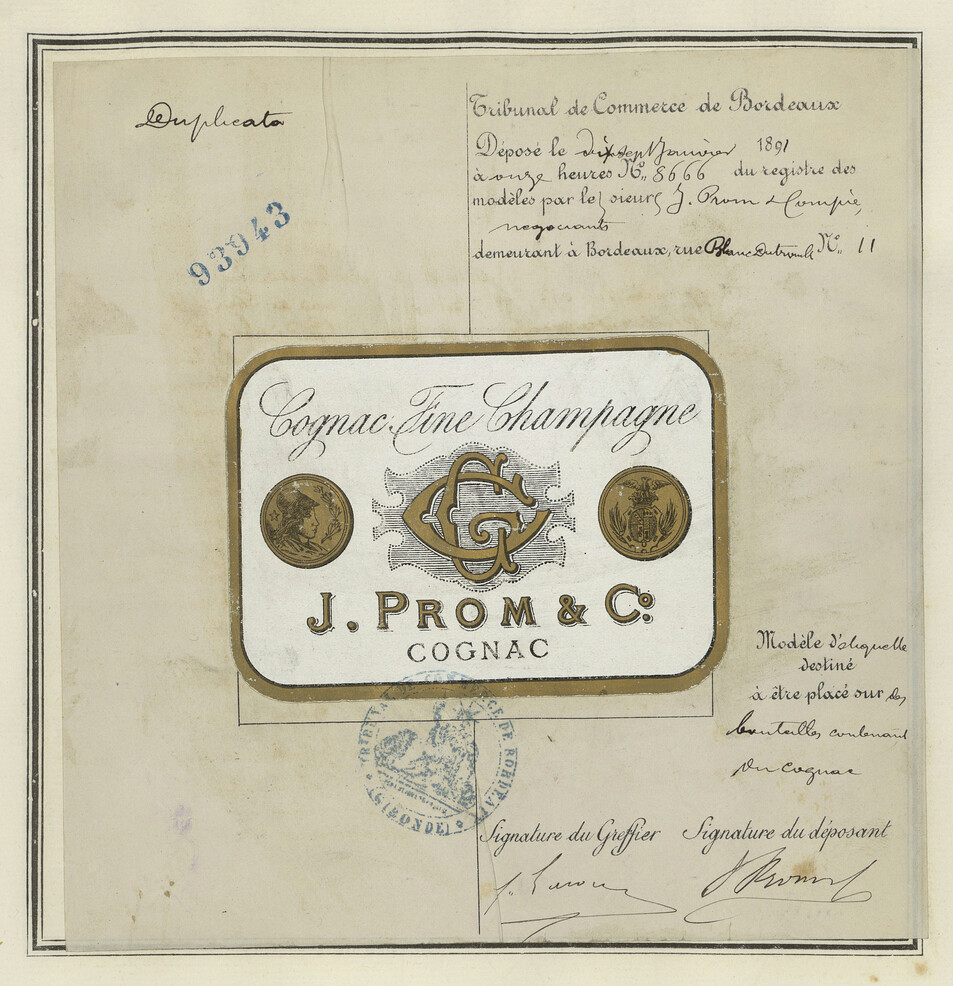 Duplicata
93943
Tribunal de Commerce de Bordeaux
Déposé le dix sept Janvier 1891
à onze heures No. 8666 du registre des
modèles par les sieurs J. Prom & Compie,
negociants
demeurant à Bordeaux, rue Blanc Dutrouilh No. 11
Cognac Fine Champagne
J. PROM & Co.
COGNAC
Modèle d'étiquette
destiné
à être placé sur des
bouteilles contenant
du cognac
TRIBUNAL DE COMMERCE DE BORDEAUX
(GIRONDE)
Signature du Greffier Signature du déposant
J Prom